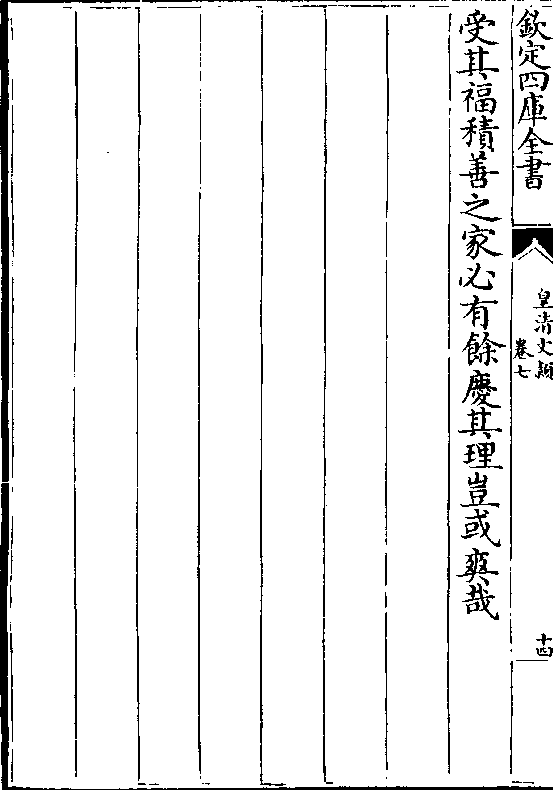 欽定四庫全書
皇清文穎
卷七
十四
受其福積善之家必有餘慶其理豈或爽哉